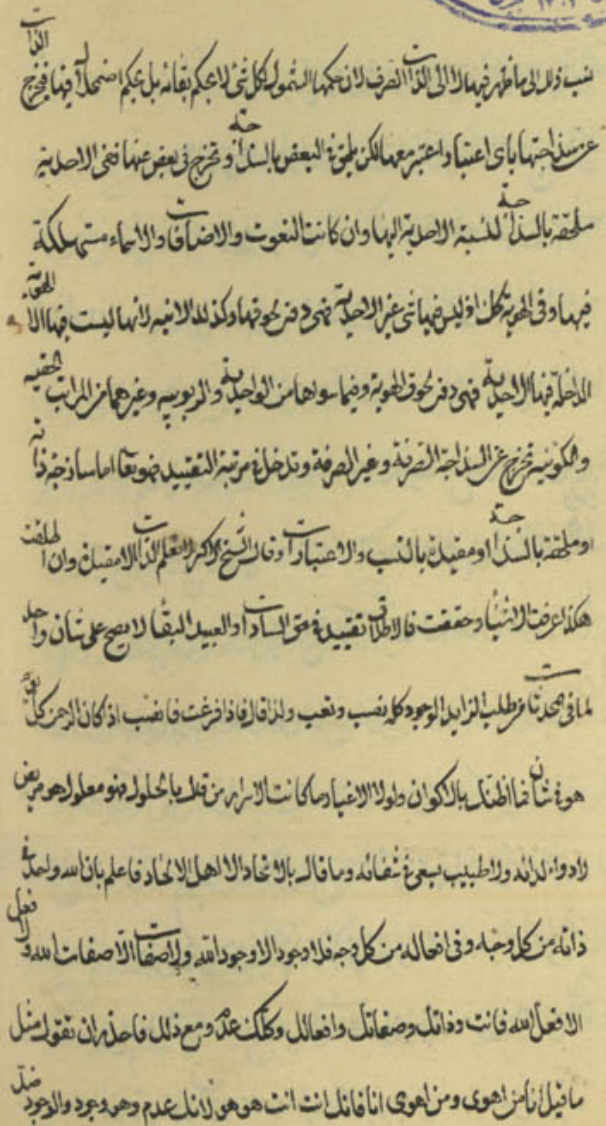 الذات
نسب ذلك الى ما ظهر فيها لا الى الذات الصرف لان حكمها الشمول لكل شئ لا يحكم بقائه بل يحكم اضمحلالها فيها فيخرج
عن سذاجتها باى اعتبار اعتبر معها لكن يلحق فى البعض بالسذاجة وتخرج فى بعض عنها ففى الاحدية
ملحقة بالسذاجة لنسبة الاحدية اليها وان كانت النعوت والاضافات والاسماء مستهلكة
فيها وفى الهوية كك اذ ليس فيها شئ غير الاحدية فهى دون لحوقها وكذلك الانية لانها ليست فيها الا الهوية
الداخلة فيها الاحدية فهى دون لحوق الهوية وفيما سواها من الواحدية والربوبية وغيرهما من المراتب الحقية
والكونية تخرج عن السذاجة الصرفة وغير الصرفة وتدخل فى مرتبة التقييد فهو تعا اما ساذجة ذاته
او ملحقة بالسذاجة او مقيدة بالنسب والاعتبارات وقال الشيخ الاكبر اعلم الذات لا مقيدة وان اطلقت
هكذا عرفت الاشياء وحققت فالاطلاق تقييد فى حق السادات والعبيد البقا لا يصح على شان واحد
لما فى المحدثات من طلب الزايد الوجود كله نصب وتعب ولذا قال فاذا فرغت فانصب اذ كان الرحمن كل يوم
هو فى شان فما اظنك بالاكوان ولولا الاغيار ما كانت الاسرار من قال بالحلول فهو معلول هو مريض
لا دواء لدائه ولا طبيب يسعى فى شفائه وما قال بالاتحاد الا اهل الالحاد فاعلم بان الله واحد فى
ذاته من كل وجه وفى افعاله من كل وجه فلا وجود الا وجود الله ولا صفات الا صفات الله ولا فعل
الا فعل الله فانت وذاتك وصفاتك وافعالك وكلك عدم ومع ذلك فاحذر ان تقول مثل
ما قيل انا من اهوى ومن اهوى انا فانك انت انت هو هو لانك عدم وهو وجود والوجود ضد